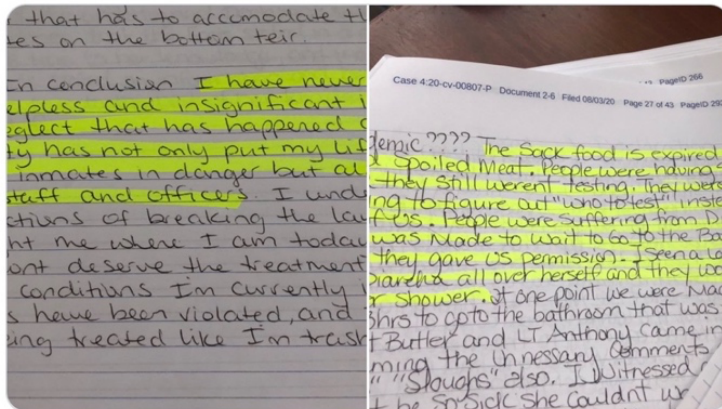 that has to accomodate th
tes on the bottom teir.
In conclusion I have never
elpless and insignificant i
eglect that has happened
ty has not only put my lif
inmates in danger but al
staff and officers. I unde
ctions of breaking the law
ht me where I am today
ont deserve the treatment
conditions Im currently i
s have been violated, and
ing treated like I'm trash
PageID 266
Case 4:20-cv-00807-P Document 2-6 Filed 08/03/20 Page 27 of 43 PageID 29
demic???? The Sack food is expired
d Spoiled Meat. People were having
they Still werent testing. They were
ng to figure out "who to test" inste
f Us. People were Suffering from D
was Made to Wait to Go to the Ba
they gave us permission. I Seen a
Diarehea all over herself and they wo
r Shower. At one point we were Ma
3hrs to go to the bathroom that was
t Butler and LT Anthony Came in
ming the Unnessary Comments
" "Sloughs" also. I Witnessed
t be So Sick She Couldnt